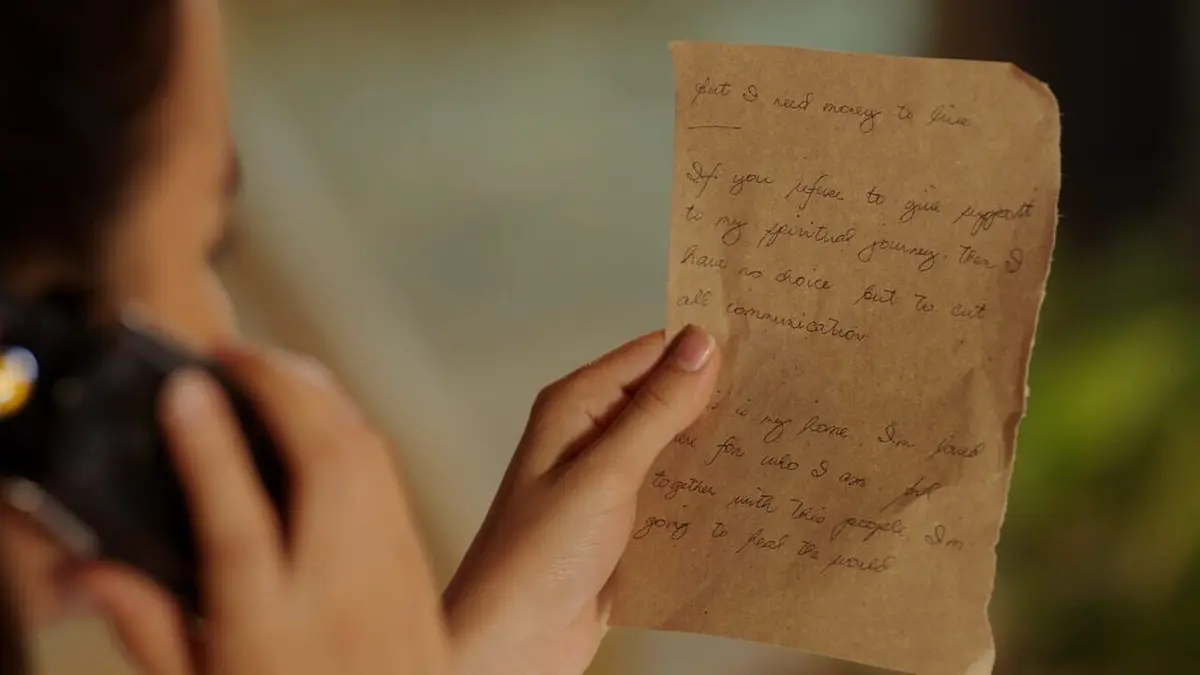 But I need money to live
If you refuse to give support
to my spiritual journey. then I
have no choice but to cut
all communication
is my home. I'm loved
for who I am.
together with this people. I'm
going to heal the world